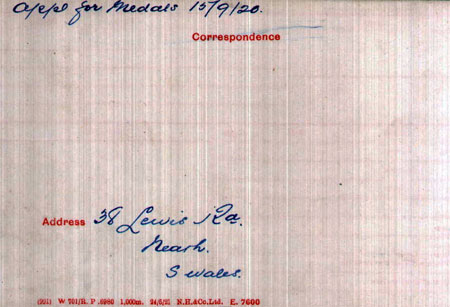 Appl for Medals 15/9/20.
Correspondence
Address 38 Lewis Rd.
Neath.
S Wales.
(201) W 701/R. P. 6980 1,000m. 24/5/21 N.H.&Co.Ltd. E. 7600